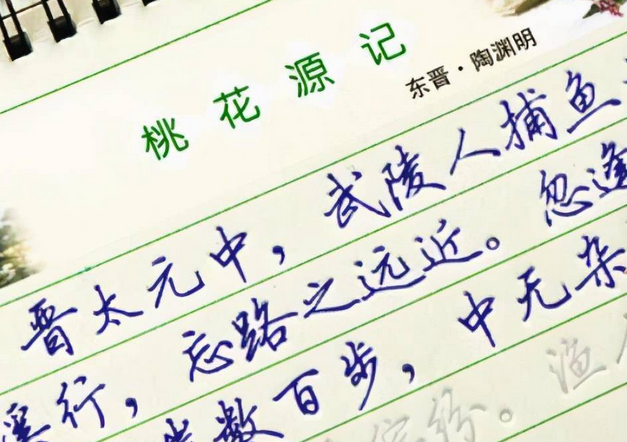 桃花源记
东晋·陶渊明
晋太元中，武陵人捕鱼
溪行，忘路之远近。忽逢
岸数百步，中无杂
缤纷。渔